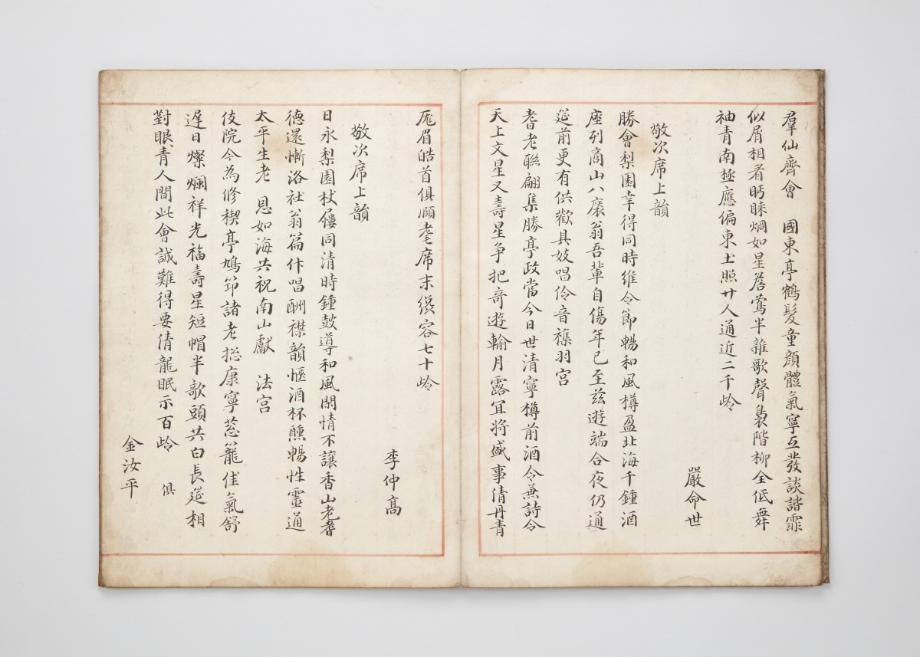 羣仙齊會 國東亭鶴髮童顏體氣寧互發談諧霏
似屑相看眄睞烱如星簷鶯半雜歌聲裊階柳全低舞
袖青南極應偏東土照廿人通近二千岭
嚴命世
敬次席上韻
勝會梨園幸得同時維令節暢和風樽盈北海千鍾酒
座列商山八袠翁吾輩自傷年已至玆遊端合夜仍通
筵前更有供歡具妓唱伶音雜羽宮
耆老聯翩集勝亭政當今日世清寧樽前酒令兼詩令
天上文星又壽星爭把奇遊輸月露冝將盛事倩丹青
厖眉皓首俱頤耄席末從容七十岭
李仲高
敬次席上韻
日永梨園杖屨同清時鍾鼓導和風閑情不讓香山老耆
德還慚洛社翁篇什唱酬襟韻愜酒杯醺暢性靈通
太平生老 恩如海共祝南山獻 法宮
伎院今為修稧亭鳩笻諸老捴康寧葱籠佳氣舒
遲日燦爛祥光福壽星短帽半歌頭共白長筵相
對眼青人間此會誠難得要倩龍眠示百岭 俱
金汝平